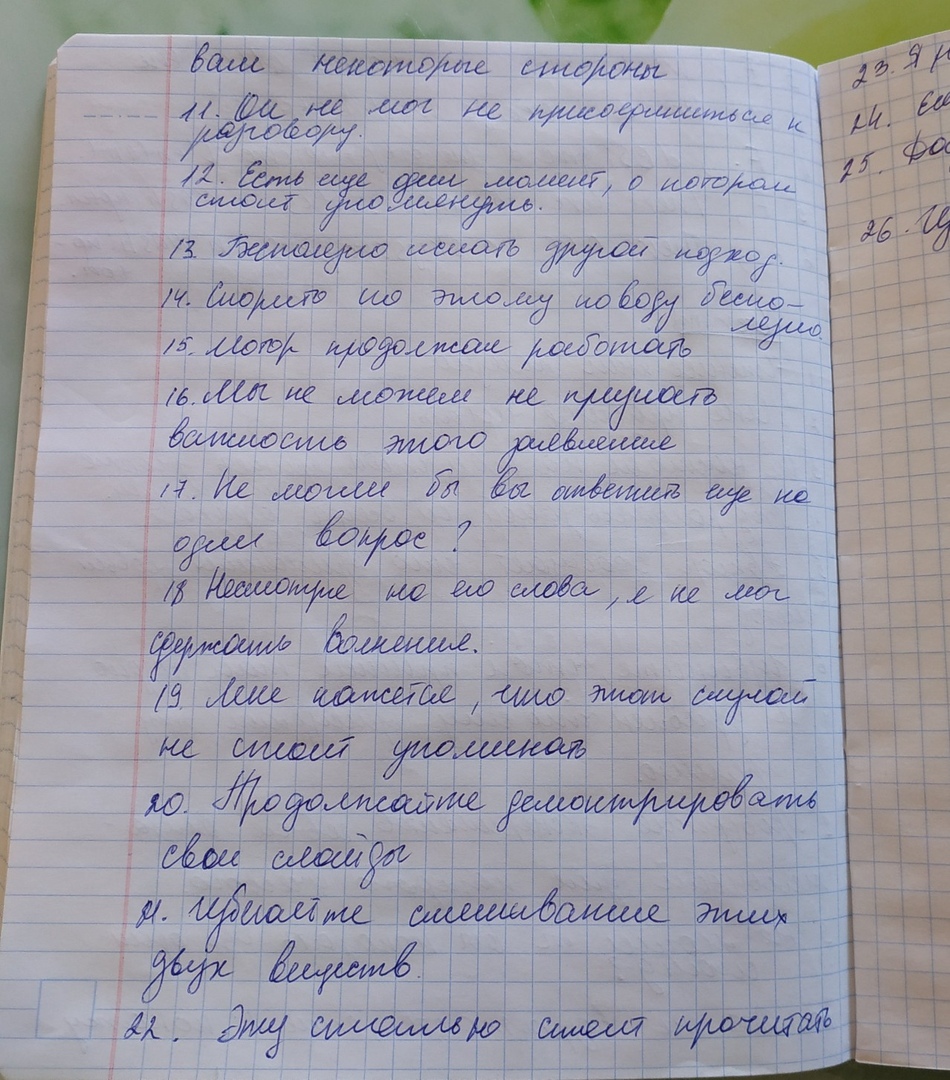 вам некоторые стороны
11. Он не мог не присоединиться к
разговору.
12. Есть еще один момент, о котором
стоит упомянуть.
13. Бесполезно искать другой подход.
14. Спорить по этому поводу беспо-
лезно.
15. Мотор продолжал работать
16. Мы не можем не признать
важность этого заявления
17. Не могли бы вы ответить еще на
один вопрос?
18 Несмотря на его слова, я не мог
сдержать волнения.
19. Мне кажется, что этот случай
не стоит упоминать
20. Продолжайте демонтрировать
свои слайды
21. Избегайте смешивание этих
двух веществ.
22. Эту статью стоит прочитать
23. Я
24.
25.
26.